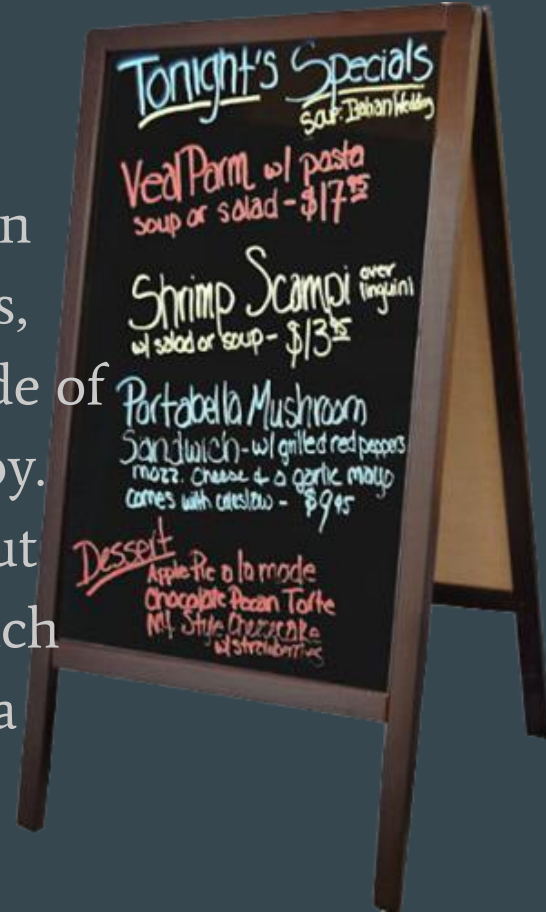 n
s,
de of
by.
ut
ch
a
Tonight's Specials
Soup: Italian Wedding
Veal Parm w/ pasta
soup or salad - $17.95
Shrimp Scampi over
linguini
w/ salad or soup - $13.95
Portabella Mushroom
Sandwich - w/ grilled red peppers
mozz. cheese & a garlic mayo
comes with coleslaw - $9.95
Dessert
Apple Pie a la mode
Chocolate Pecan Torte
N.Y. Style Cheesecake
w/ strawberries